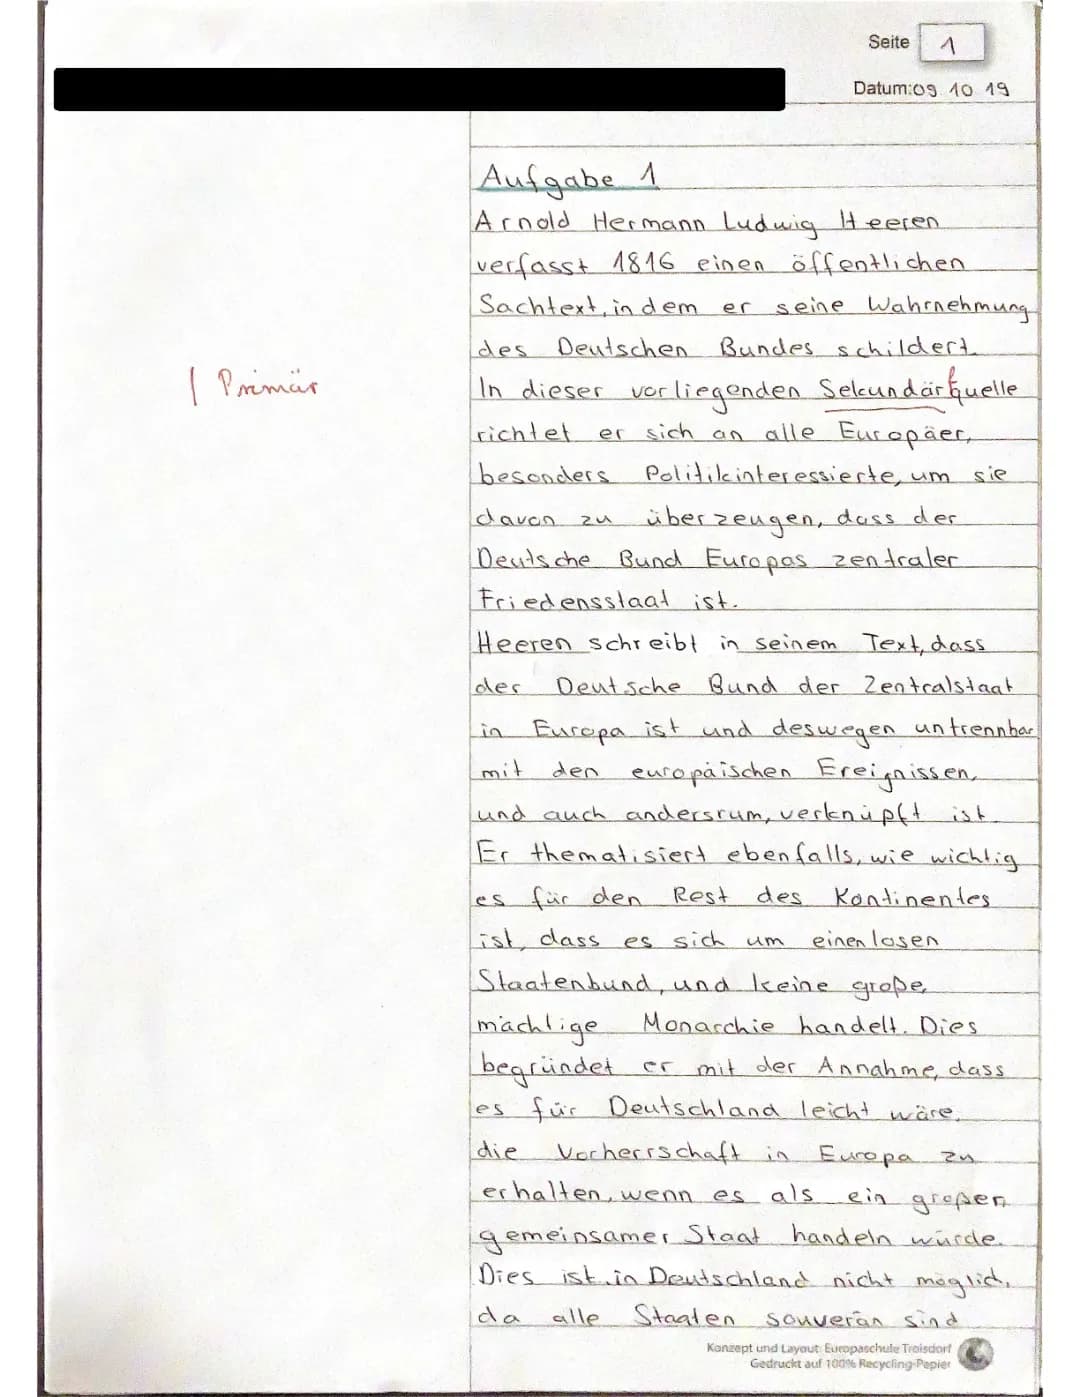 Seite 1
Datum: 09 10 19
Aufgabe 1
Arnold Hermann Ludwig Heeren
verfasst 1816 einen öffentlichen
Sachtext, in dem er seine Wahrnehmung
des Deutschen Bundes schildert.
| Primär
In dieser vorliegenden Sekundärquelle
richtet er sich an alle Europäer,
besonders Politikinteressierte, um sie
davon zu überzeugen, dass der
Deutsche Bund Europas zentraler
Friedensstaat ist.
Heeren schreibt in seinem Text, dass
der Deutsche Bund der Zentralstaat
in Europa ist und deswegen untrennbar
mit den europäischen Ereignissen,
und auch andersrum, verknüpft ist.
Er thematisiert ebenfalls, wie wichtig
es für den Rest des Kontinentes
ist, dass es sich um einen losen
Staatenbund, und keine große,
mächtige Monarchie handelt. Dies
begründet er mit der Annahme, dass
es für Deutschland leicht wäre,
die Vorherrschaft in Europa zu
erhalten, wenn es als ein großer,
gemeinsamer Staat handeln würde.
Dies ist in Deutschland nicht möglich,
da alle Staaten souverän sind
Konzept und Layout: Europaschule Troisdorf
Gedruckt auf 100% Recycling-Papier